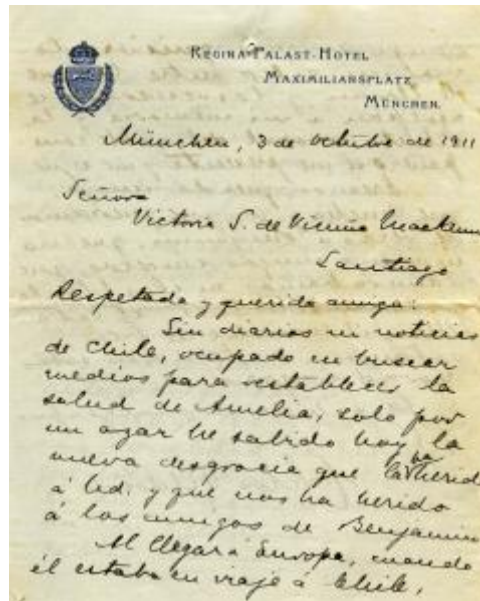 REGINA-PALAST-HOTEL
MAXIMILIANSPLATZ
MÜNCHEN.
München, 3 de octubre de 1911
Señora
Victoria S. de Vicuna Mackenna
Santiago
Respetada y querida amiga:
Sin diarios ni noticias
de Chile, ocupado en buscar
medios para restablecer la
salud de Amelia, solo por
un azar he sabido hoy la
nueva desgracia que la ha herido
á Ud. y que nos ha herido
á los amigos de Benjamin
Al llegar á Europa, cuando
él estaba en viaje á Chile,